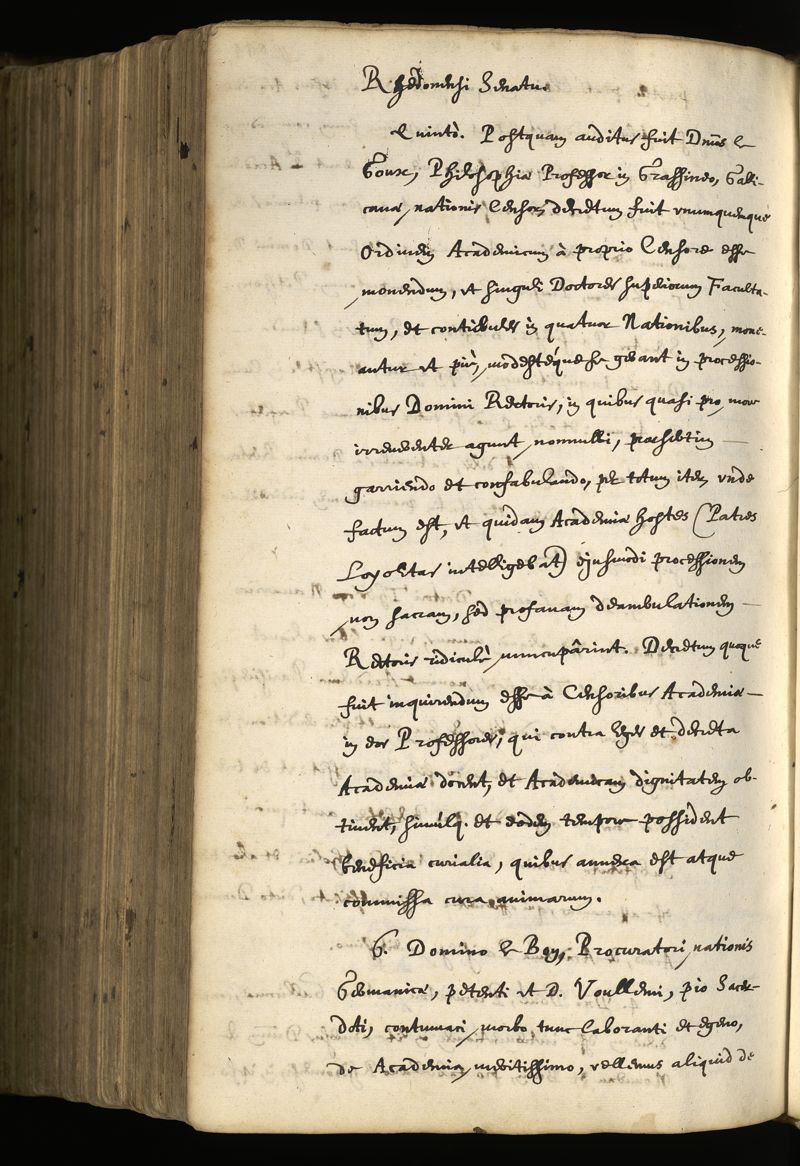 Rhedomensi Senatu.
Quintò. Postquam auditus fuit Dnus le
Goux, Philosophiæ Professor in Grassinæo, Galli-
canæ nationis Censor, decretum fuit vnumquemque
Ordinem Academicum à proprio Censore esse
monendum, vt singuli Doctores superiorum Faculta-
tum, et contribules in quatuor Nationibus, mone-
antur vt piè, modestéque se gerant in processio-
nibus Domini Rectoris, in quibus quasi pro more
irreverenter agunt nonnulli, præsertim
garriendo et confabulando, per totum iter, vnde
factum est, vt quidam Academiæ hostes (Patres
Loyolitas intelligebat) ejusmodi processionem
non sacram, sed profanam deambulationem
Rectoris ridiculè nuncupârint. Decretum quoque
fuit inquirendum esse à Censoribus Academiæ
in eos Professores, qui contra leges et decreta
Academiæ docent, et Academicam dignitatem ob-
tinent, simulq. et eodem tempore possident
beneficia curialia, quibus annexa est atque
commissa cura animarum.
6. Domino le Boy, Procuratori nationis
Germanicæ, petenti vt D. Voullemi, pio Sacer-
doti, contumaci morbo tunc laboranti et egeno,
de Academia meritissimo, vellemus aliquid de